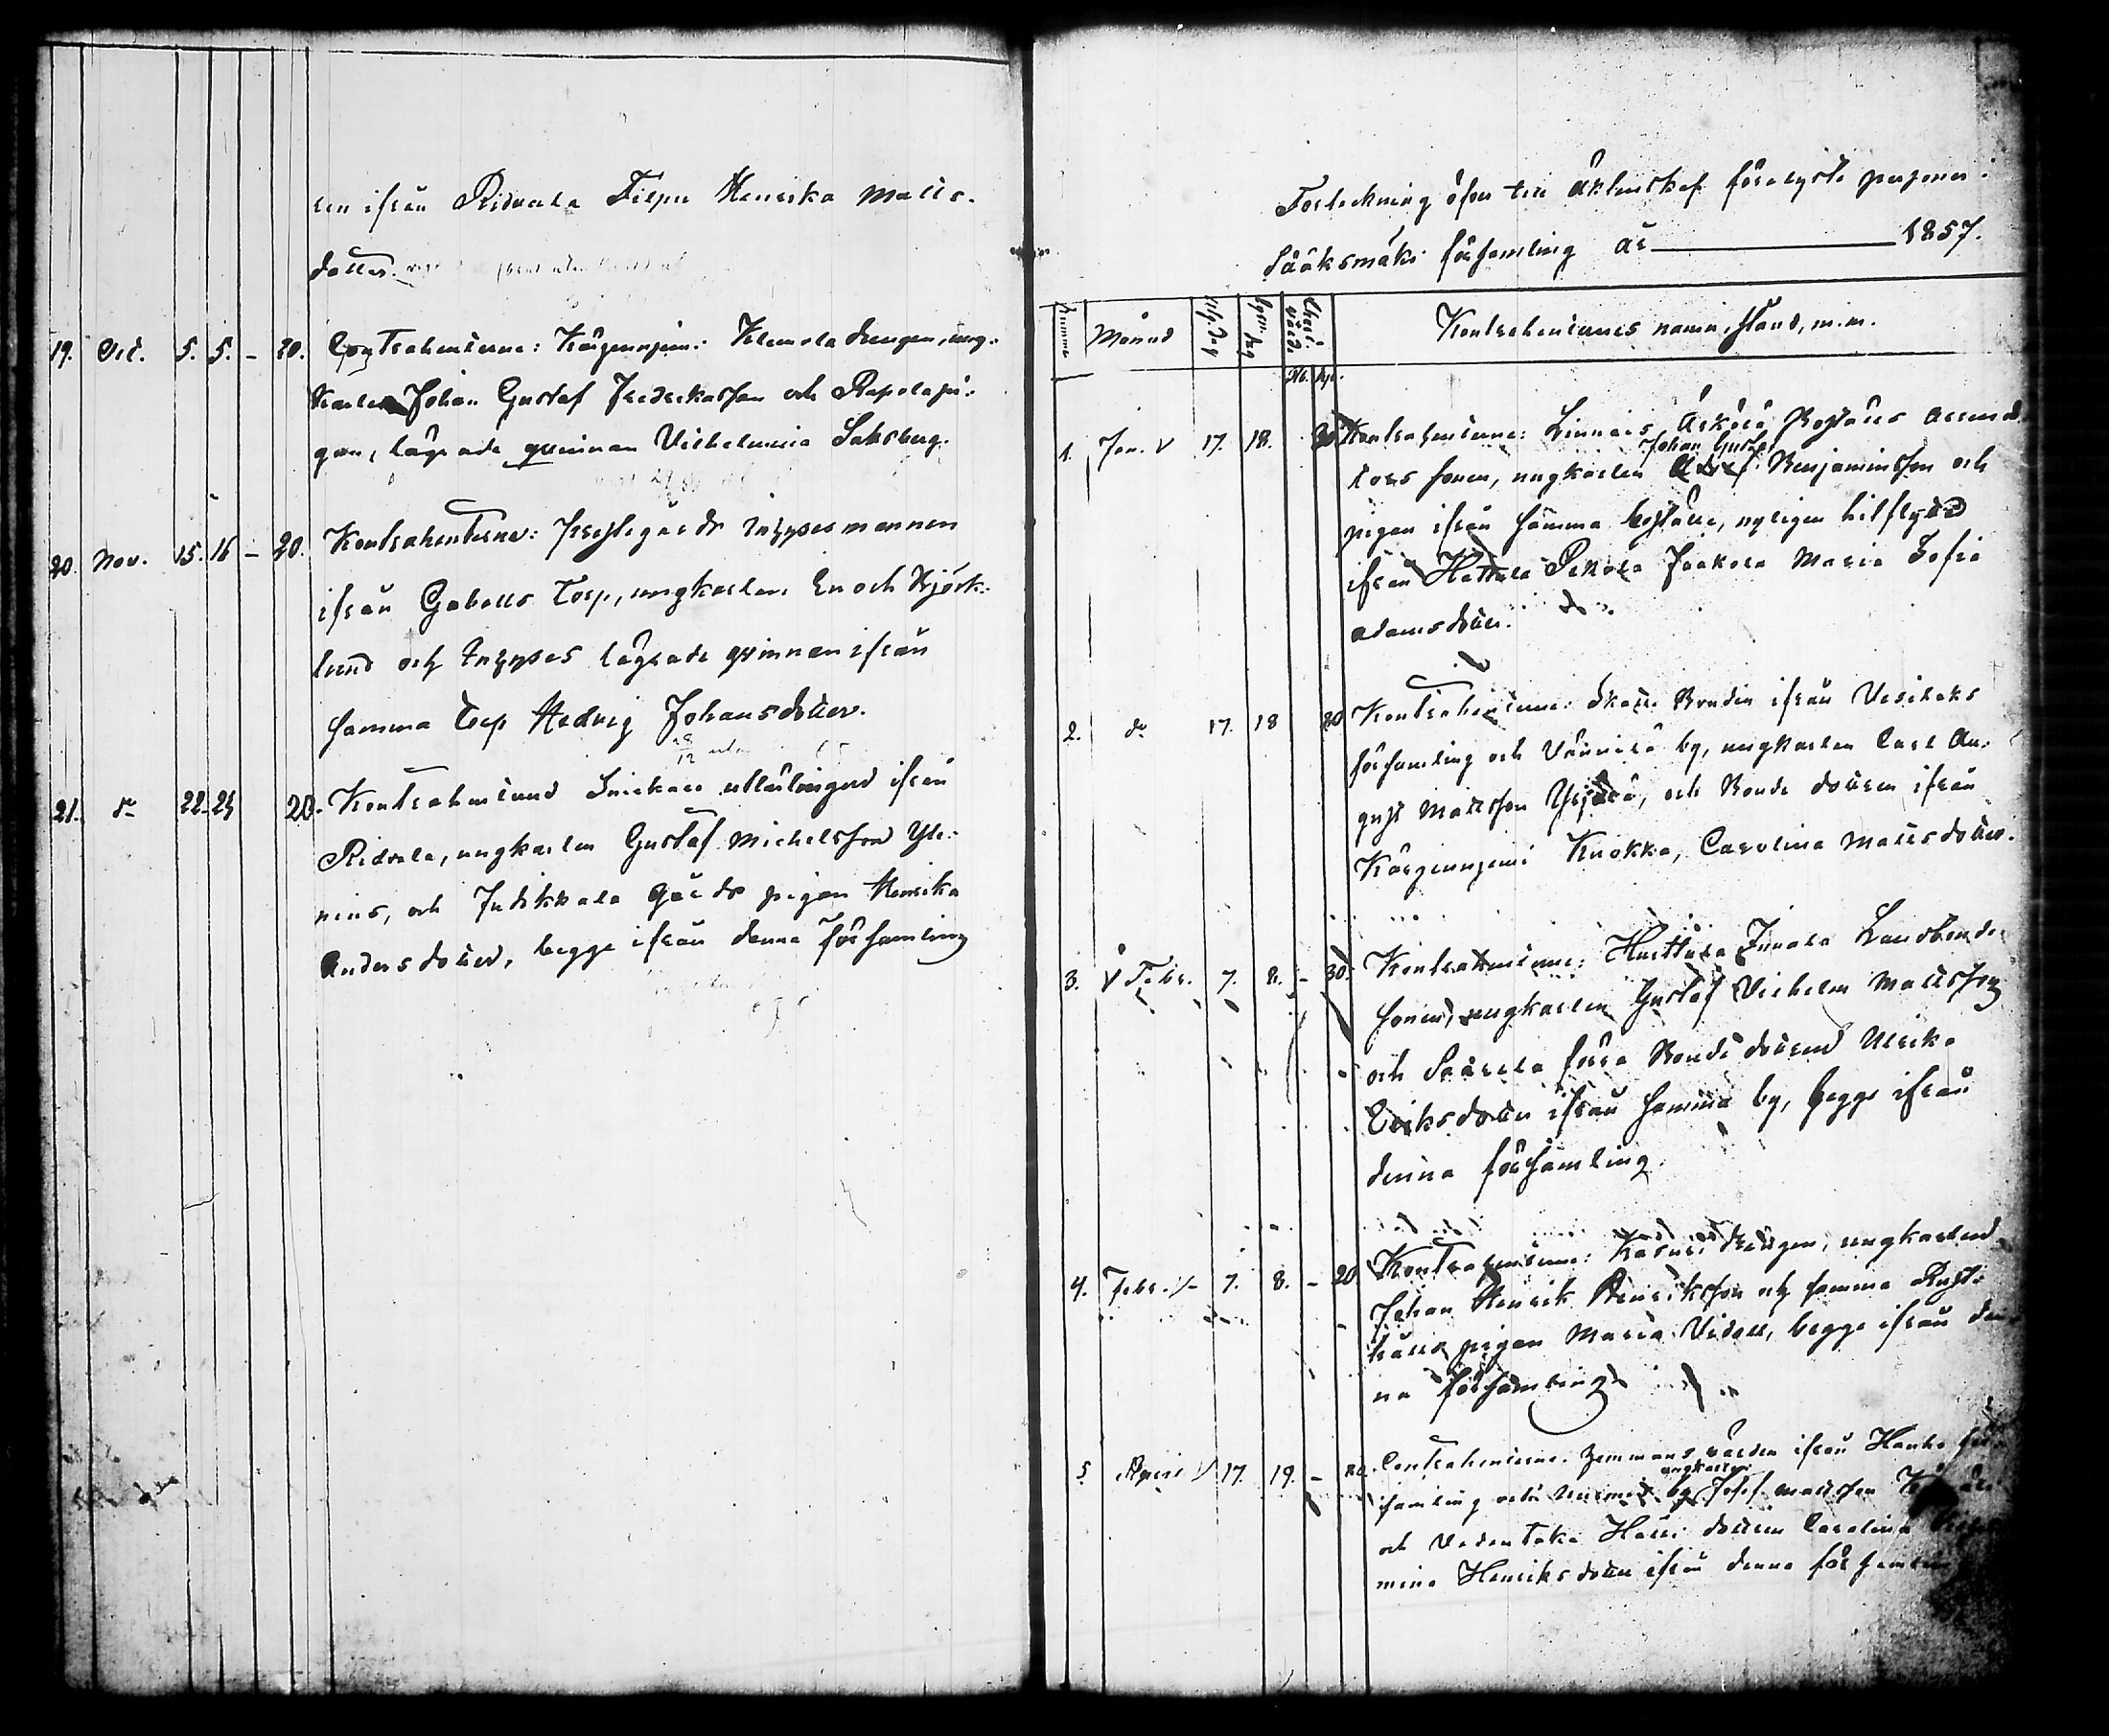 ren ifrån Ridvala Filpu Henrika Matts-
dotter.
19. Oct. 5. 5. – 20. Contrahenterne: Kärjenniemi Klemola drengen, ung-
karlen Johan Gustaf Fredriksson och Rapola pi-
gan, lägrade qvinnan Vilhelmina Saksberg.
20. Nov. 15. 16 – 20. Kontrahenterne: Prestegårds inhysesmannen
ifrån Gaballs Torp, ungkarlen Enoch Björk-
lund och Inhyses lägrade qvinnan ifrån
samma Torp Hedvig Johansdotter.
21. do 22. 23 20. Kontrahenterne Snickare utlärlingen ifrån
Ridvala, ungkarlen Gustaf Michelsson Yle-
nius, och Jutikkala Gårds pigan Henrika
Andersdotter, begge ifrån denna Församling
Förteckning öfver till Äktenskap förelyste personer i
Sääksmäki församling år 1857.
Numro Månad Utg. Dag Lysn. Dag
Kontrahenternes namn, stånd, m.m.
Rb. Kp.
1. Jan. 17. 18. 30 Kontrahenterne: Linnais Äskölä Boställs arrenda-
tors sonen, ungkarlen Johan Gustaf Benjaminsson och
pigan ifrån samma boställe, nyligen hitflyttad
ifrån Hattula Pekola Jaakola Maria Sofia
Adamsdotter.
2. do 17. 18 20 Kontrahenterne: Skatte Bonden ifrån Vesilaks
församling och Vännilä by, ungkarlen Carl Au-
gust Mattsson Yrjälä, och Bonde dottren ifrån
Kärjenniemi Knokka, Carolina Mattsdotter.
3. Febr. 7. 8. – 30. Kontrahenterne: Huittula Junala Landbonde
sonen, ungkarlen Gustaf Vilhelm Mattsson
och Saarela förra Bonde dottren Ulrika
Eriksdotter ifrån samma by, begge ifrån
denna församling.
4. Febr. 7. 8. – 20 Kontrahenterne: Kasuri drängen, ungkarlen
Johan Henrik Henriksson och samma Rust-
hålls pigan Maria Videll, begge ifrån den-
na församling
5. April 17. 19. – Contrahenterne: Hemmans värden ifrån Hauho för-
samling och by ungkarlen Josef Mattsson
och Vedentaka Hatti dottren Carolina Vilhel-
mina Henriksdotter ifrån denna församling